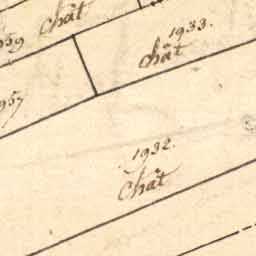 959 Chât
1933.
Chât
957
1932.
Chât